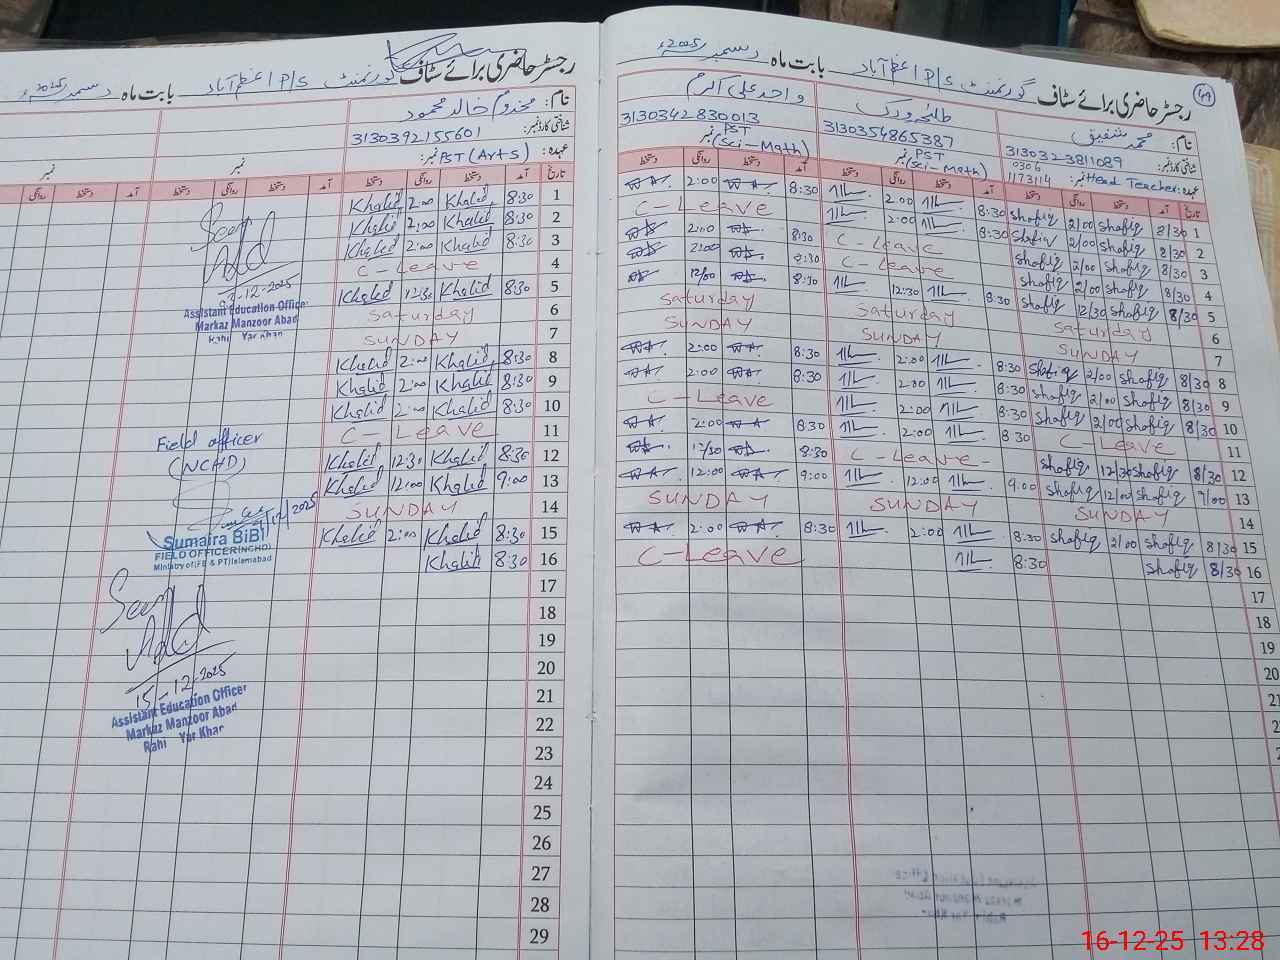 رجسٹر حاضری برائے سٹاف گورنمنٹ P/S اعظم آباد بابت ماہ دسمبر 2025ء
49
نام: محمد شفیق
شناختی کارڈ نمبر: 3130323811089
عہدہ: Head Teacher نمبر:
طلحہ ورک
3130354865387
PST (Sci-Math) نمبر:
واحد علی اکرم
3130342830013
PST (Sci-Math) نمبر:
تاریخ آمد دستخط روانگی دستخط آمد دستخط روانگی دستخط آمد دستخط روانگی دستخط
1 8/30 Shafiq 2/00 Shafiq 8:30 2:00 8:30 2:00
2 8/30 Shafiq 2/00 Shafiq 8:30 2:00 C-Leave
3 8/30 Shafiq 2/00 Shafiq C-Leave 8:30 2:00
4 8/30 Shafiq 2/00 Shafiq C-Leave 8:30 2:00
5 8/30 Shafiq 12/30 Shafiq 8:30 12:30 8:30 12/00
6 Saturday Saturday Saturday
7 SUNDAY SUNDAY SUNDAY
8 8/30 Shafiq 2/00 Shafiq 8:30 2:00 8:30 2:00
9 8/30 Shafiq 2/00 Shafiq 8:30 2:00 8:30 2:00
10 8/30 Shafiq 2/00 Shafiq 8:30 2:00 C-Leave
11 C-Leave 8:30 2:00 8:30 2:00
12 8/30 Shafiq 12/30 Shafiq C-Leave 8:30 12/30
13 9/00 Shafiq 12/00 Shafiq 9:00 12:00 9:00 12:00
14 SUNDAY SUNDAY SUNDAY
15 8/30 Shafiq 2/00 Shafiq 8:30 2:00 8:30 2:00
16 8/30 Shafiq 8:30 C-Leave
17
18
19
20
رجسٹر حاضری برائے سٹاف گورنمنٹ P/S اعظم آباد بابت ماہ دسمبر 2025ء
نام: مخدوم خالد محمود
شناختی کارڈ نمبر: 3130392155601
عہدہ: PST (Arts) نمبر:
نمبر
نمبر
تاریخ آمد دستخط روانگی دستخط آمد دستخط روانگی دستخط آمد دستخط روانگی
1 8:30 Khalid 2:00 Khalid
2 8:30 Khalid 2:00 Khalid
3 8:30 Khalid 2:00 Khalid
4 C-Leave
5 8:30 Khalid 12:30 Khalid
6 Saturday
7 SUNDAY
8 8:30 Khalid 2:00 Khalid
9 8:30 Khalid 2:00 Khalid
10 8:30 Khalid 2:00 Khalid
11 C-Leave
12 8:30 Khalid 12:30 Khalid
13 9:00 Khalid 12:00 Khalid
14 SUNDAY
15 8:30 Khalid 2:00 Khalid
16 8:30 Khalid
17
18
19
20
21
22
23
24
25
26
27
28
29
Seen
-12-2025
Assistant Education Officer
Markaz Manzoor Abad
Rahi Yar Khan
Field officer
(NCHD)
Sumaira BiBi
FIELD OFFICER(NCHD)
Ministry of FE & PT Islamabad
Seen
15-12-2025
Assistant Education Officer
Markaz Manzoor Abad
Rahi Yar Khan
16-12-25 13:28